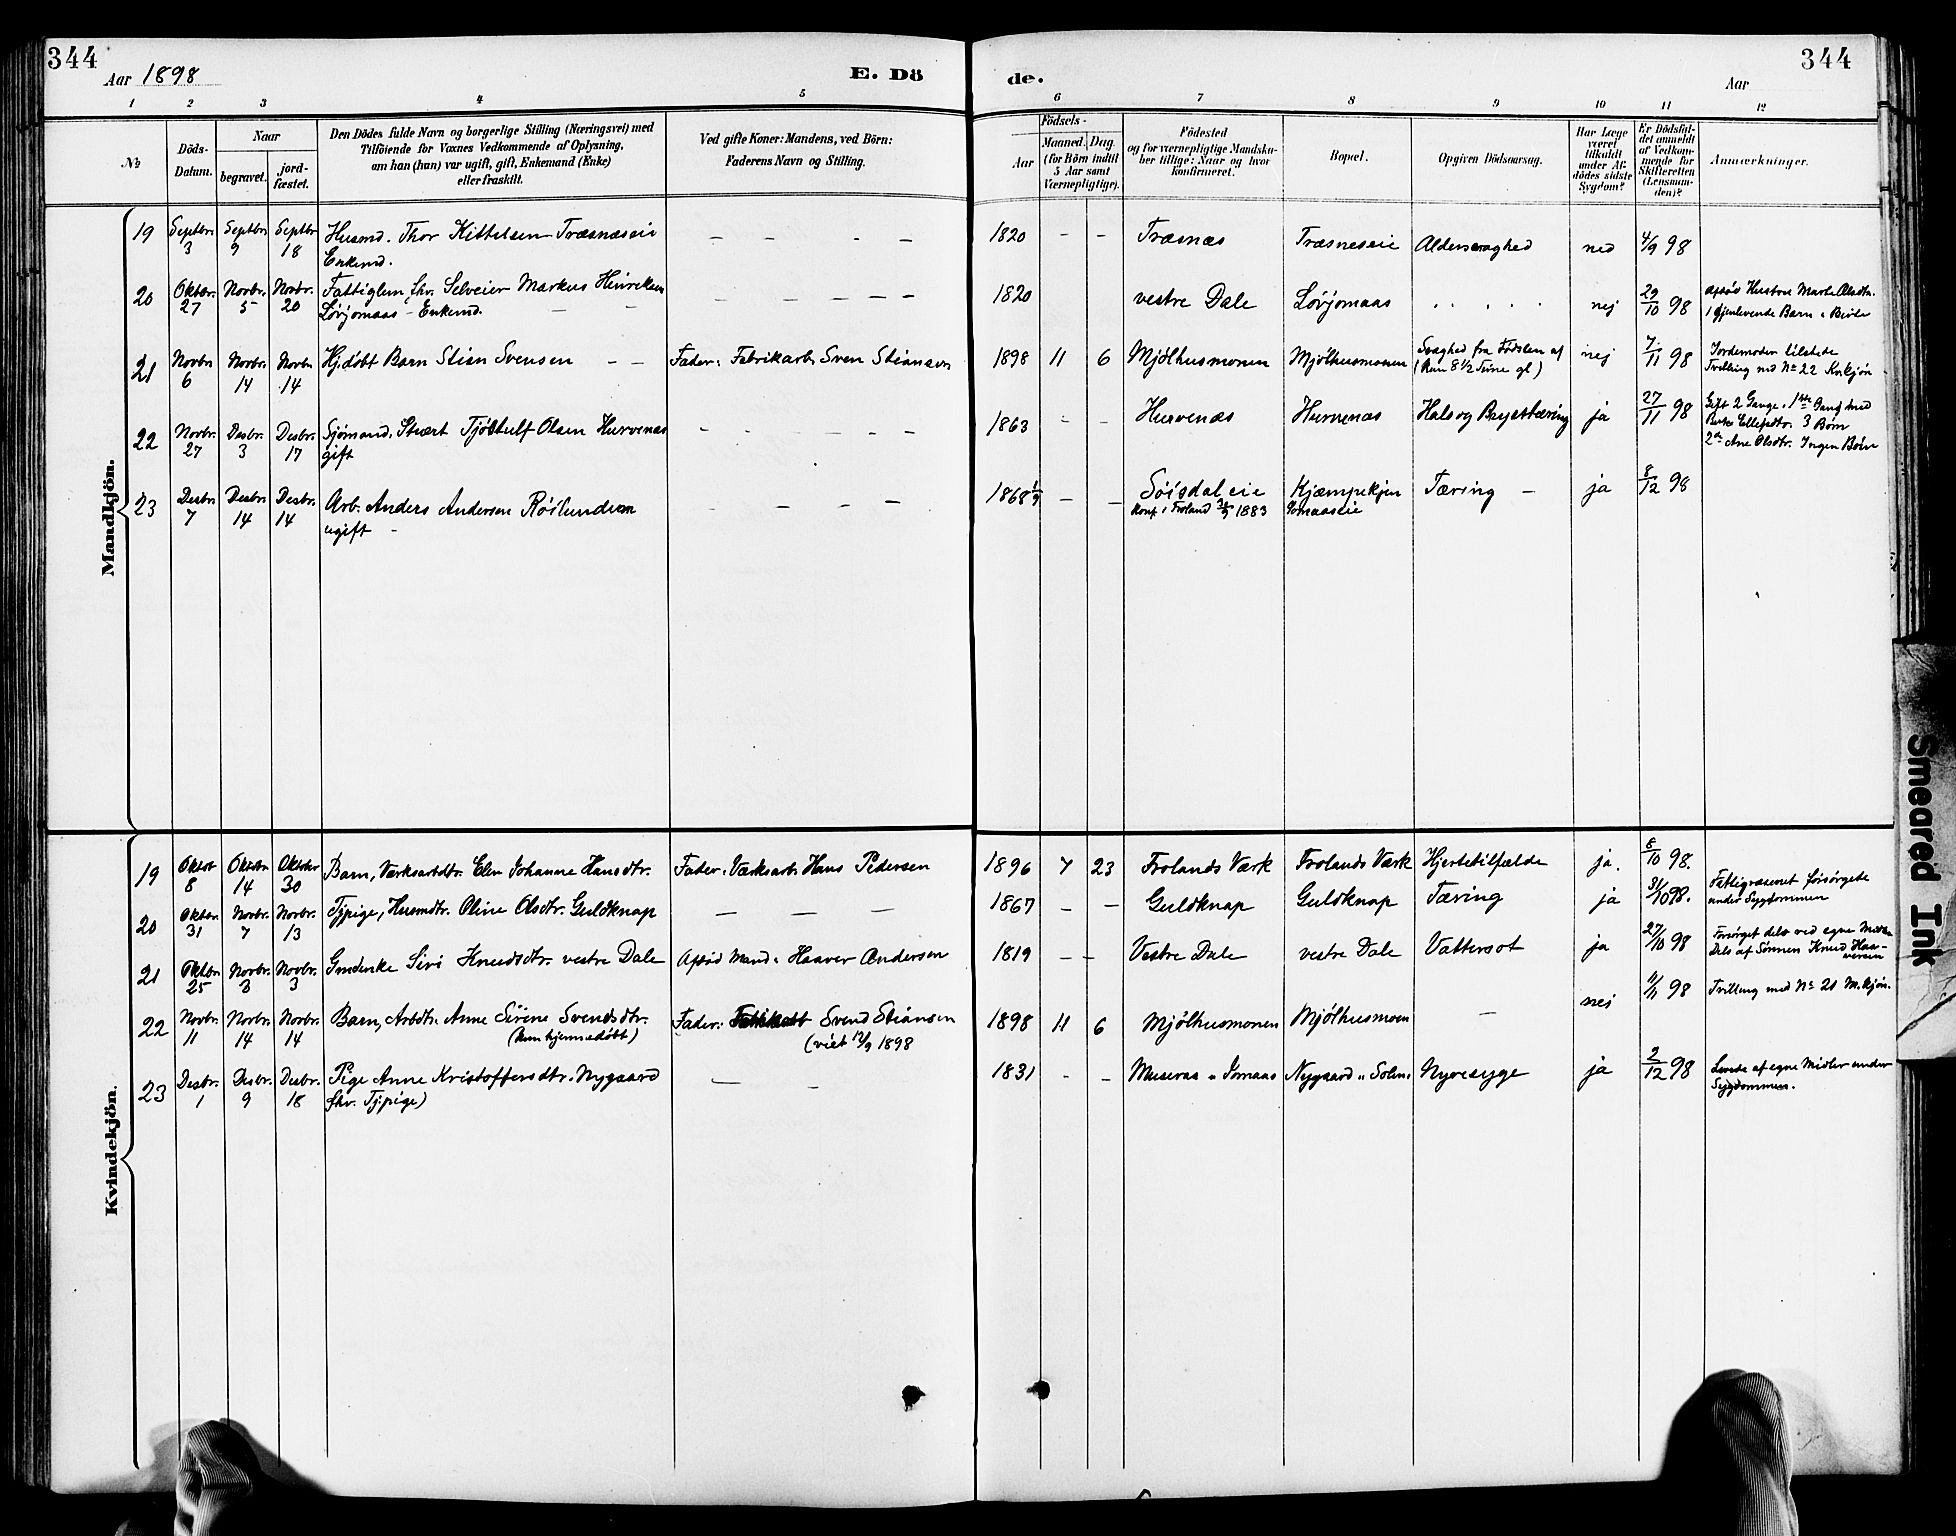 344
Aar 1898
E. Dö
de.
344
Aar
1 2 3 4 5 6 7 8 9 10 11 12
№
Döds-
Datum.
Naar
begravet.
jord-
fæstet.
Den Dödes fulde Navn og borgerlige Stilling (Næringsvei) med
Tilföiende for Voxnes Vedkommende af Oplysning,
om han (hun) var ugift, gift, Enkemand (Enke)
eller fraskilt.
Ved gifte Koner: Mandens, ved Börn:
Faderens Navn og Stilling.
Födsels-
Aar
Maaned. Dag.
(for Börn indtil
5 Aar samt
Værnepligtige).
Födested
og for værnepligtige Mandska-
ber tillige: Naar og hvor
konfirmeret.
Bopæl.
Opgiven Dödsaarsag.
Har Læge
været
tilkaldt
under Af-
dödes sidste
Sygdom?
Er Dödsfal-
det anmeldt
af Vedkom-
mende for
Skifteretten
(Lensman-
den)?
Anmærkninger.
Mandkjön.
19 Septbr. 3 Septbr. 9 Septbr. 18 Husmd. Thor Kittelsen Træsnæseie – – – – 1820 – – Træsnæs Træsneseie Alderssvaghed nei 4/9 98
Enkemd.
20 Oktbr. 27 Novbr. 5 Novbr. 20 Fattiglem, fhv. Selveier Markus Henriksen – – – – – – 1820 vestre Dale Lövjomaas . . . . nej 29/10 98 Afdöd Hustru Marte Olsdtr.
Lövjomaas – Enkemd. – – 1 Gjenlevende Barn i
21 Novbr. 6 Novbr. 14 Novbr. 14 Hj.döbt Barn Stian Svensen – – Fader: Fabrikarb. Sven Stiansen 1898 11 6 Mjölhusmonen Mjölhusmonen Svaghed fra Födslen af nej 7/11 98 Jordemoder tilstede
(kun 8 1/2 Time gl) Tvilling med No 22 Kvkjön
22 Novbr. 27 Desbr. 3 Desbr. 17 Sjömand, Stuert Tjöstulf Olsen Hurvenæs – – – – – 1863 – – Hurvenæs Hurvenæs Hals og Brysttæring ja 27/11 98 Gift 2 Gange, 1ste Gang med
gift Ellefsdtr. 3 Börn
2den Ane Olsdtr. Ingen Börn
23 Desbr. 7 Desbr. 14 Desbr. 14 Arb. Anders Andersen Röilundmn – – – – 1868 – – Söisdal eie Kjæmpekjen Tæring – ja 8/12 98
ugift – Konf. i Froland 1883 Jomaaseie
Kvindekjön.
19 Oktbr. 8 Oktbr. 14 Oktbr. 30 Barn, Værksarbdtr. Elen Johanne Hansdtr. Fader: Værksarb. Hans Pedersen 1896 7 23 Frolands Værk Frolands Værk Hjertetilfælde ja. 8/10 98.
20 Oktbr. 31 Novbr. 7 Novbr. 13 Tjpige, Husmdtr. Oline Olsdtr. Guldknap – – – 1867 – – Guldknap Guldknap Tæring ja 31/10 98. Fattigvæsenet forsörgede
under Sygdommen
21 Oktbr. 25 Novbr. 3 Novbr. 3 Gmdenke Siri Knudsdtr. vestre Dale Afdöd Mand: Haaver Andersen 1819 – – Vestre Dale vestre Dale Vattersot ja 27/10 98 Forsörget dels ved egne Midler
Dels af Sönnen Knud Haa-
versen
22 Novbr. 11 Novbr. 14 Novbr. 14 Barn, Arbdtr. Anne Sirine Svendsdtr. Fader: Svend Stiansen 1898 11 6 Mjölhusmonen Mjölhusmoen – nej 11/11 98 Tvilling med No 21 M.kjön.
(kun hjemmedöbt) (viet 17/9 1898
23 Desbr. 1 Desbr. 9 Desbr. 18 Pige Anne Kristoffersdtr. Nygaard – – 1831 – – Museraas u. Jomaas Nygaard u. Solm. Nyresyge ja 2/12 98 Levede af egne Midler under
fhv. Tj.pige) Sygdommen.
Smeared Ink